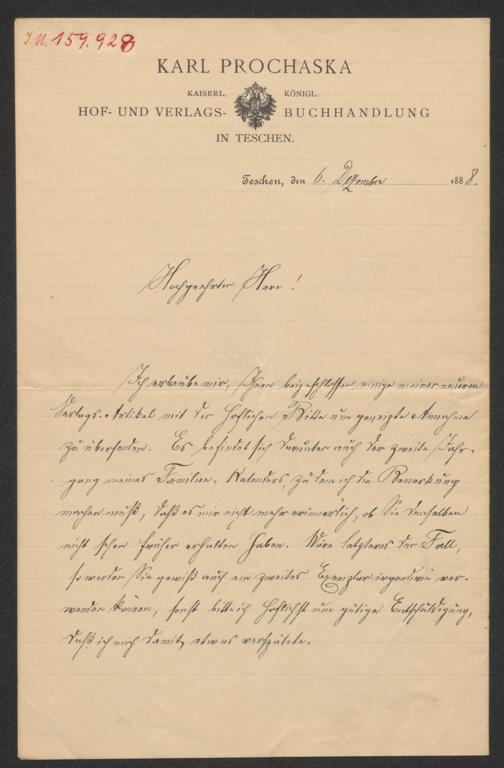 J.N. 159.928
KARL PROCHASKA
KAISERL. KÖNIGL.
HOF- UND VERLAGS- BUCHHANDLUNG
IN TESCHEN.
Teschen, den 6. Dezember 1888.
Hochgeehrter Herr!
Ich erlaube mir, Ihnen beigeschlossen einige meiner neueren
Verlags-Artikel mit der höflichen Bitte um geneigte Annahme
zu übersenden. Es befindet sich darunter auch der zweite Jahr-
gang meines Familien-Kalenders, zu dem ich die Bemerkung
machen muß, daß es mir nicht mehr erinnerlich, ob Sie denselben
nicht schon früher erhalten haben. Wäre letzteres der Fall,
so werden Sie gewiß auch ein zweites Exemplar irgendwie ver-
wenden können, sonst bitte ich höflichst um gütige Entschuldigung,
daß ich mich damit etwas verspätete.